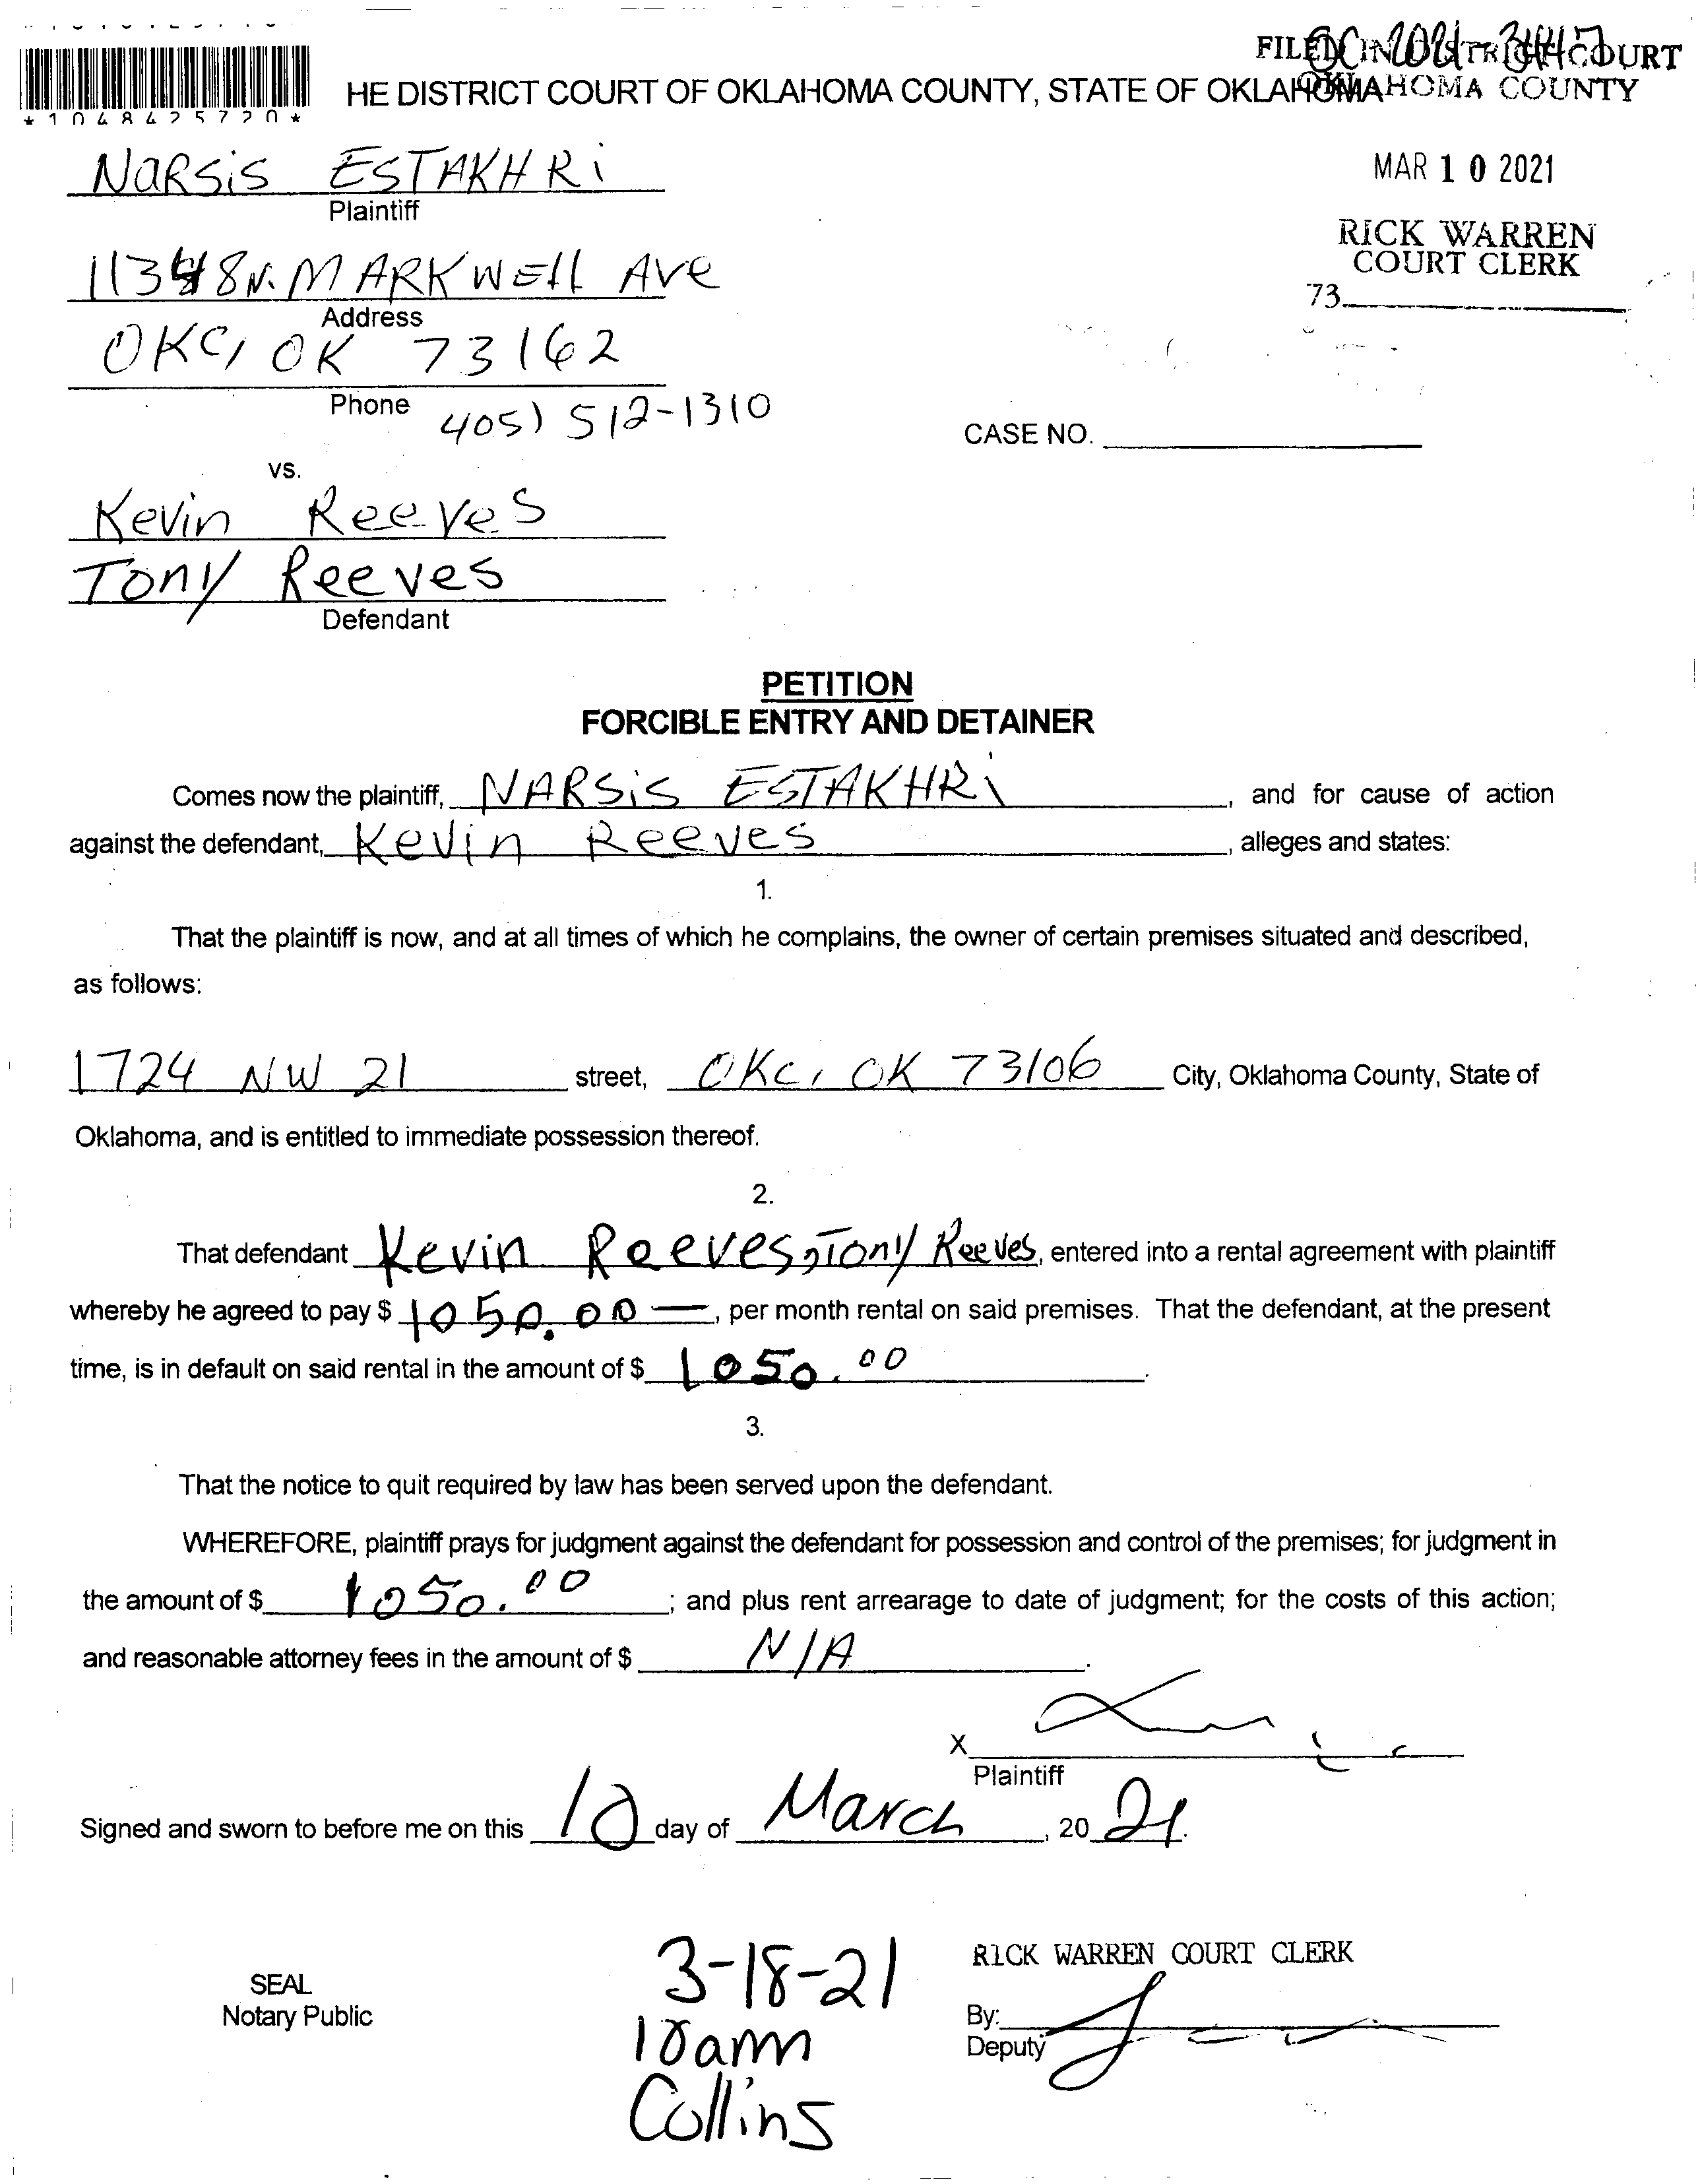 FILED IN DISTRICT COURT
OKLAHOMA COUNTY
HE DISTRICT COURT OF OKLAHOMA COUNTY, STATE OF OKLAHOMA
*1048425720*
MAR 10 2021
RICK WARREN
COURT CLERK
73
NaRSiS ESTAKHRi
Plaintiff
11348 N. MARKWEll AVe
Address
OKC, OK 73162
Phone 405) 512-1310
CASE NO.
vs.
Kevin Reeves
Tony Reeves
Defendant
PETITION
FORCIBLE ENTRY AND DETAINER
Comes now the plaintiff, NARSiS ESTAKHRi, and for cause of action
against the defendant, Kevin Reeves, alleges and states:
1.
That the plaintiff is now, and at all times of which he complains, the owner of certain premises situated and described,
as follows:
1724 NW 21 street, OKC, OK 73106 City, Oklahoma County, State of
Oklahoma, and is entitled to immediate possession thereof.
2.
That defendant Kevin Reeves, Tony Reeves, entered into a rental agreement with plaintiff
whereby he agreed to pay $ 1050.00 —, per month rental on said premises. That the defendant, at the present
time, is in default on said rental in the amount of $ 1050.00.
3.
That the notice to quit required by law has been served upon the defendant.
WHEREFORE, plaintiff prays for judgment against the defendant for possession and control of the premises; for judgment in
the amount of $ 1050.00; and plus rent arrearage to date of judgment; for the costs of this action;
and reasonable attorney fees in the amount of $ N/A.
X
Plaintiff
Signed and sworn to before me on this 10 day of March, 2021.
SEAL
Notary Public
3-18-21
10am
Collins
RICK WARREN COURT CLERK
By:
Deputy